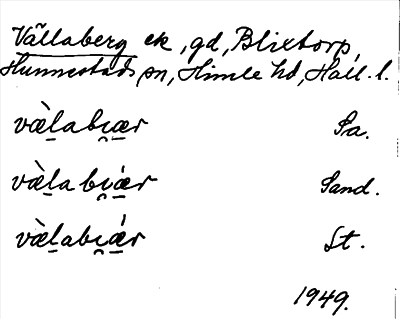 Vällaberg ek, gd, Blixtorp,
Hunnestads sn, Himle hd, Hall. l.
vä̀l̠abi̯æ̠r Sa.
vä̀l̠a bi̯ǽ̠r Sand.
vä̀l̠abi̯ǽ̠r St.
1949.